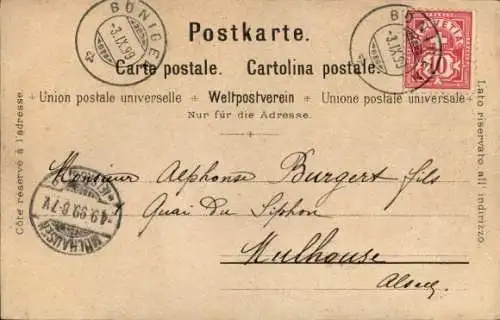 BÖNIGEN
-3.IX.99
BÖNIGEN
-3.IX.99
HELVETIA
10
Postkarte.
Carte postale. Cartolina postale.
Union postale universelle + Weltpostverein + Unione postale universale
Nur für die Adresse.
Côté réservé à l'adresse.
Lato riservato all indirizzo.
MÜLHAUSEN
4.9.99.6-7V.
Monsieur Alphonse Burgert fils
Quai du Siphon
Mulhouse
Alsace